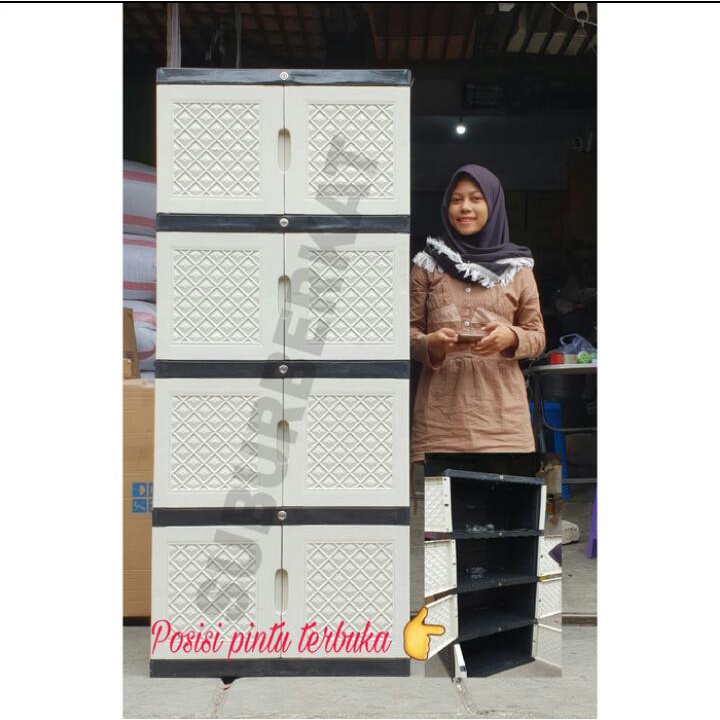 SUBURBERKAT
Posisi pintu terbuka